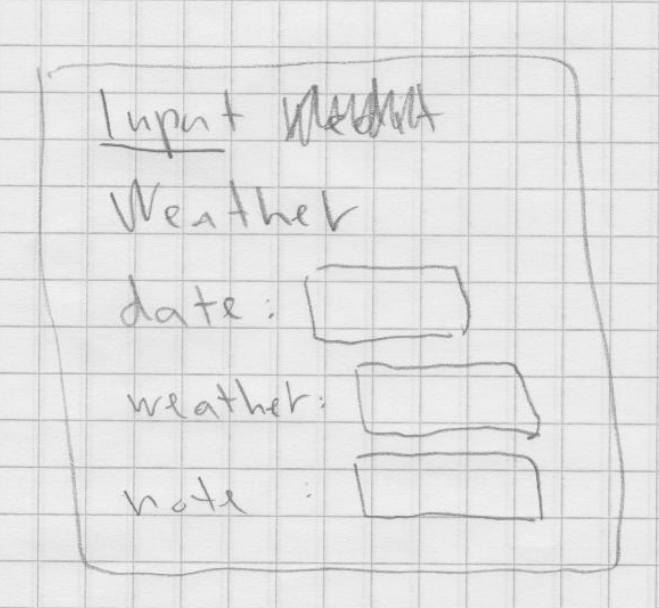 Input
Weather
date:
weather:
note :